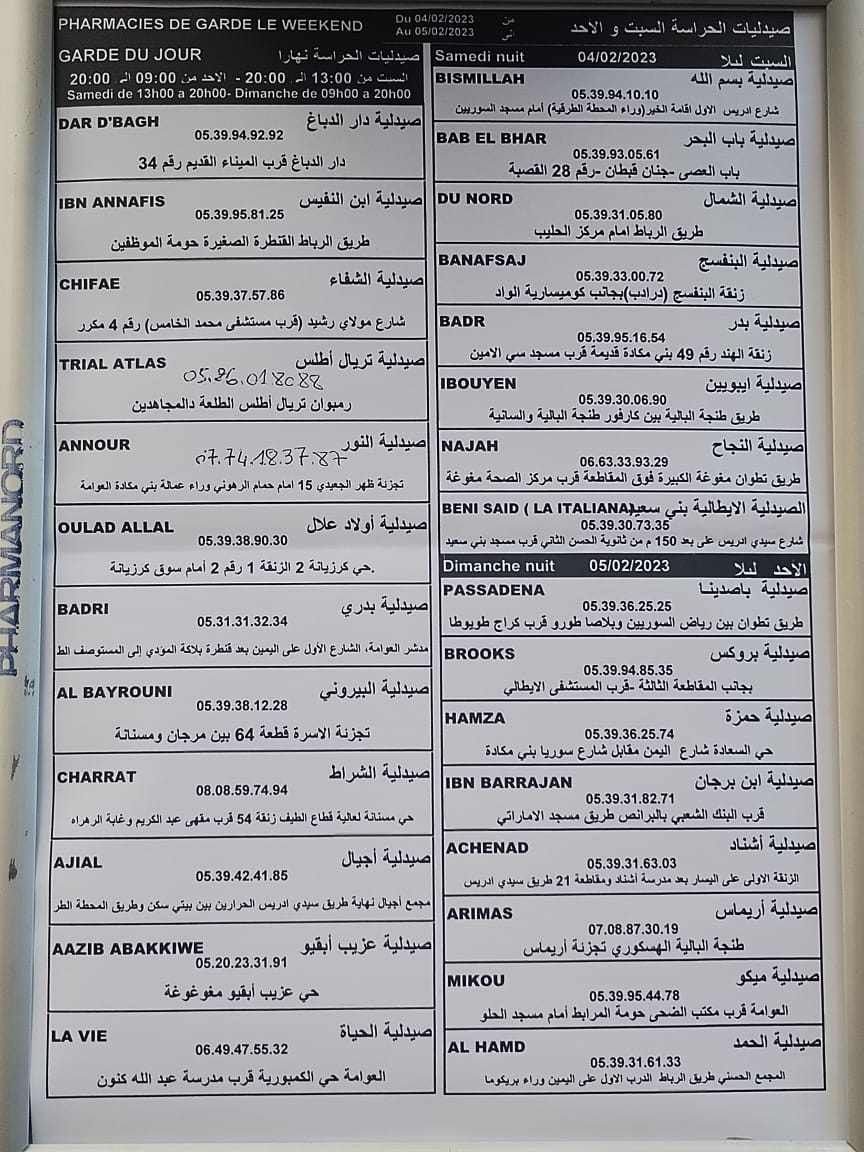 PHARMACIES DE GARDE LE WEEKEND
Du 04/02/2023 من
Au 05/02/2023 الى
صيدليات الحراسة السبت و الاحد
GARDE DU JOUR صيدليات الحراسة نهارا
السبت من 13:00 الى 20:00 - الاحد من 09:00 الى 20:00
Samedi de 13h00 a 20h00- Dimanche de 09h00 a 20h00
DAR D'BAGH صيدلية دار الدباغ
05.39.94.92.92
دار الدباغ قرب الميناء القديم رقم 34
IBN ANNAFIS صيدلية ابن النفيس
05.39.95.81.25
طريق الرباط القنطرة الصغيرة حومة الموظفين
CHIFAE صيدلية الشفاء
05.39.37.57.86
شارع مولاي رشيد (قرب مستشفى محمد الخامس) رقم 4 مكرر
TRIAL ATLAS صيدلية تريال أطلس
05.26.01.80.88
رمبوان تريال أطلس الطلعة دالمجاهدين
ANNOUR صيدلية النور
07.74.18.37.87
تجزئة ظهر الجعيدي 15 امام حمام الرهوني وراء عمالة بني مكادة العوامة
OULAD ALLAL صيدلية أولاد علال
05.39.38.90.30
حي كرزيانة 2 الزنقة 1 رقم 2 أمام سوق كرزيانة.
BADRI صيدلية بدري
05.31.31.32.34
مدشر العوامة، الشارع الأول على اليمين بعد قنطرة بلاكة المؤدي إلى المستوصف الط
AL BAYROUNI صيدلية البيروني
05.39.38.12.28
تجزئة الاسرة قطعة 64 بين مرجان ومسنانة
CHARRAT صيدلية الشراط
08.08.59.74.94
حي مسنانة لعالية قطاع الطيف زنقة 54 قرب مقهى عبد الكريم وغابة الرهراه
AJIAL صيدلية أجيال
05.39.42.41.85
مجمع أجيال نهاية طريق سيدي ادريس الحرارين بين بيتي سكن وطريق المحطة الطر
AAZIB ABAKKIWE صيدلية عزيب أبقيو
05.20.23.31.91
حي عزيب أبقيو مغوغوغة
LA VIE صيدلية الحياة
06.49.47.55.32
العوامة حي الكمبورية قرب مدرسة عبد الله كنون
Samedi nuit 04/02/2023 السبت ليلا
BISMILLAH صيدلية بسم الله
05.39.94.10.10
شارع ادريس الاول اقامة الخير(وراء المحطة الطرقية) أمام مسجد السوريين
BAB EL BHAR صيدلية باب البحر
05.39.93.05.61
باب العصى -جنان قبطان -رقم 28 القصبة
DU NORD صيدلية الشمال
05.39.31.05.80
طريق الرباط امام مركز الحليب
BANAFSAJ صيدلية البنفسج
05.39.33.00.72
زنقة البنفسج (درادب)بجانب كوميسارية الواد
BADR صيدلية بدر
05.39.95.16.54
زنقة الهند رقم 49 بني مكادة قديمة قرب مسجد سي الامين
IBOUYEN صيدلية ايبويين
05.39.30.06.90
طريق طنجة البالية بين كارفور طنجة البالية والسانية
NAJAH صيدلية النجاح
06.63.33.93.29
طريق تطوان مغوغة الكبيرة فوق المقاطعة قرب مركز الصحة مغوغة
BENI SAID ( LA ITALIANA) الصيدلية الايطالية بني سعيد
05.39.30.73.35
شارع سيدي ادريس على بعد 150 م من ثانوية الحسن الثاني قرب مسجد بني سعيد
Dimanche nuit 05/02/2023 الاحد ليلا
PASSADENA صيدلية باصدينا
05.39.36.25.25
طريق تطوان بين رياض السوريين وبلاصا طورو قرب كراج طويوطا
BROOKS صيدلية بروكس
05.39.94.85.35
بجانب المقاطعة الثالثة- قرب المستشفى الايطالي
HAMZA صيدلية حمزة
05.39.36.25.74
حي السعادة شارع اليمن مقابل شارع سوريا بني مكادة
IBN BARRAJAN صيدلية ابن برجان
05.39.31.82.71
قرب البنك الشعبي بالبرانص طريق مسجد الاماراتي
ACHENAD صيدلية أشناد
05.39.31.63.03
الزنقة الاولى على اليسار بعد مدرسة أشناد ومقاطعة 21 طريق سيدي ادريس
ARIMAS صيدلية أريماس
07.08.87.30.19
طنجة البالية الهسكوري تجزئة أريماس
MIKOU صيدلية ميكو
05.39.95.44.78
العوامة قرب مكتب الضحى حومة المرابط أمام مسجد الحلو
AL HAMD صيدلية الحمد
05.39.31.61.33
المجمع الحسني طريق الرباط الدرب الاول على اليمين وراء بريكوما
PHARMANORD